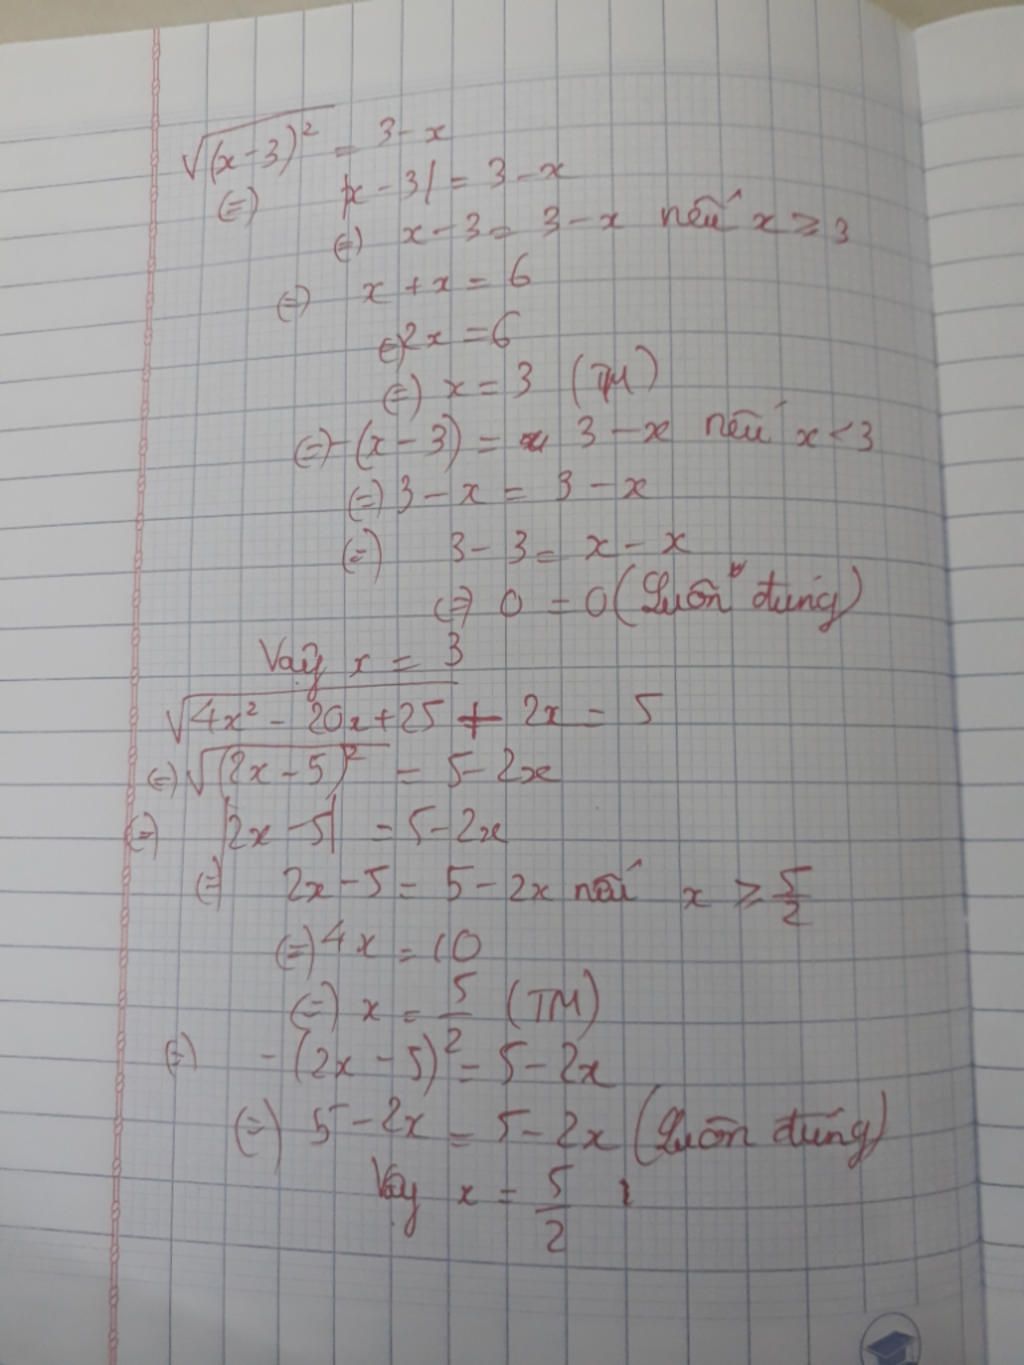 √(x-3)² = 3-x
(=) |x-3| = 3-x
(=) x-3 = 3-x nếu x ≥ 3
(=) x+x = 6
(=) 2x = 6
(=) x = 3 (TM)
(=) -(x-3) = 3-x nếu x < 3
(=) 3-x = 3-x
(=) 3-3 = x-x
(=) 0 = 0 (Luôn đúng)
Vậy x = 3
√4x² - 20x+25 + 2x = 5
(=) √(2x-5)² = 5-2x
(=) |2x-5| = 5-2x
(=) 2x-5 = 5-2x nếu x ≥ 5/2
(=) 4x = 10
(=) x = 5/2 (TM)
(=) -(2x-5)² = 5-2x
(=) 5-2x = 5-2x (Luôn đúng)
Vậy x = 5/2